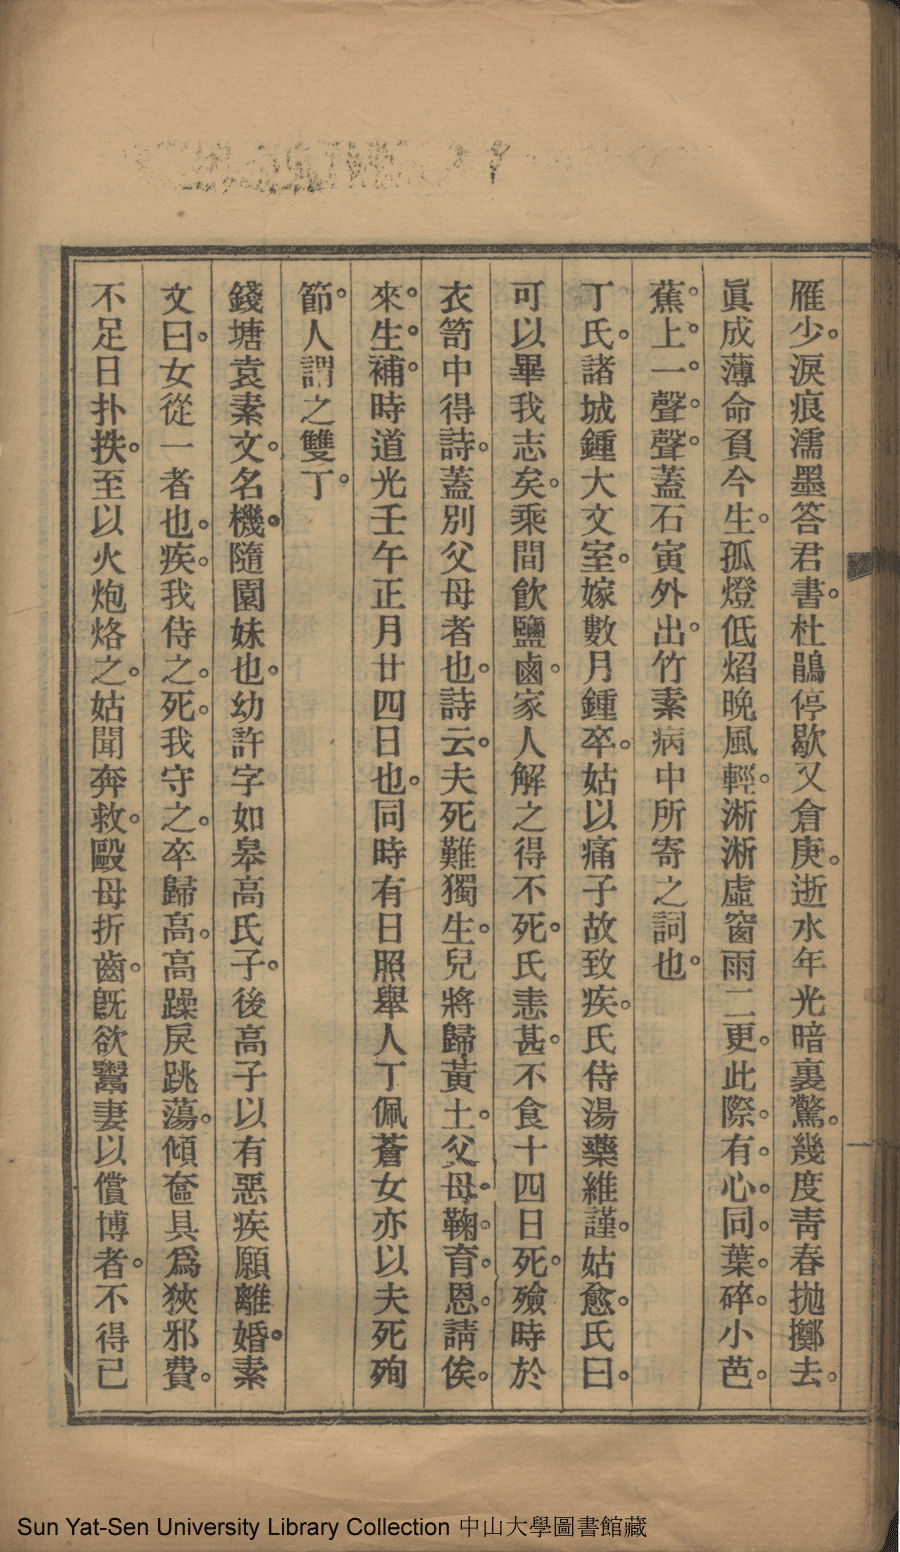 雁少。淚痕濡墨答君書。杜鵑停歇又倉庚。逝水年光暗裏驚。幾度靑春拋擲去。
眞成薄命負今生。孤燈低焰晚風輕。淅淅虛窗雨二更。此際。有。心。同。葉。碎。小芭。
蕉。上。一。聲。聲。蓋石寅外出。竹素病中所寄之詞也。
丁氏。諸城鍾大文室。嫁數月鍾卒。姑以痛子故致疾。氏侍湯藥維謹。姑愈。氏曰。
可以畢我志矣。乘間飮鹽鹵。家人解之得不死。氏恚甚。不食十四日死。殮時於
衣笥中得詩。蓋別父母者也。詩云。夫死難獨生。兒將歸黃土。父母。鞠。育。恩。請俟。
來。生。補。時道光壬午正月廿四日也。同時有日照舉人丁佩蒼女亦以夫死殉
節。人謂之雙丁。
錢塘袁素文。名機。隨園妹也。幼許字如皋高氏子。後高子以有惡疾願離婚。素
文曰。女從一者也。疾。我侍之。死。我守之。卒歸高。高躁戾跳蕩。傾奩具爲狹邪費。
不足日扑抶。至以火炮烙之。姑聞奔救。毆母折齒。旣欲鬻妻以償博者。不得已
Sun Yat-Sen University Library Collection 中山大學圖書館藏